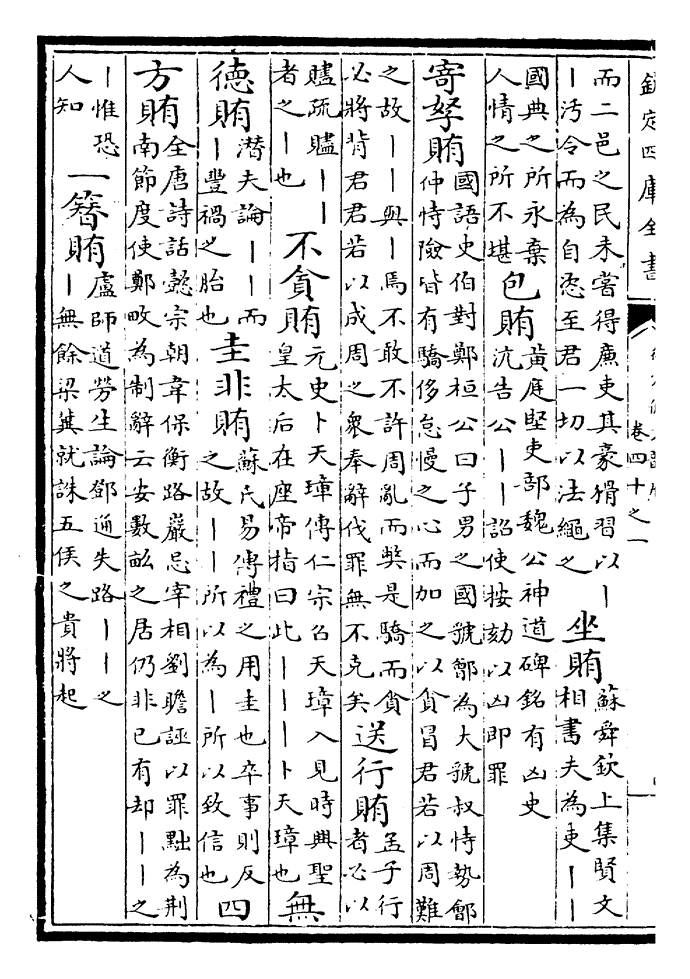 欽定四庫全書
卷四十之一
而二邑之民未嘗得廉吏其豪猾習以｜
｜汚令而為自恣至君一切以法繩之
坐賄
蘇舜欽上集賢文
相書夫為吏｜｜
國典之所永棄
人情之所不堪
包賄
黃庭堅吏部魏公神道碑銘有凶吏
沆告公｜｜詔使按劾以凶即罪
寄孥賄
國語史伯對鄭桓公曰子男之國虢鄶為大虢叔恃勢鄶
仲恃險皆有驕侈怠慢之心而加之以貪冒君若以周難
之故｜｜與｜焉不敢不許周亂而獘是驕而貪
必將背君君若以成周之衆奉辭伐罪無不克矣
送行賄
孟子行
者必以
贐疏贐｜｜
者之｜也
不貪賄
元史卜天璋傳仁宗召天璋入見時興聖
皇太后在座帝指曰此｜｜｜卜天璋也
無
德賄
潛夫論｜｜而
｜豐禍之胎也
圭非賄
蘇氏易傳禮之用圭也卒事則反
之故｜｜所以為｜所以致信也
四
方賄
全唐詩話懿宗朝韋保衡路巖忌宰相劉瞻誣以罪黜為荆
南節度使鄭畋為制辭云安數畝之居仍非已有却｜｜之
｜惟恐
人知
一簪賄
盧師道勞生論鄧通失路｜｜之
｜無餘梁冀就誅五侯之貴將起